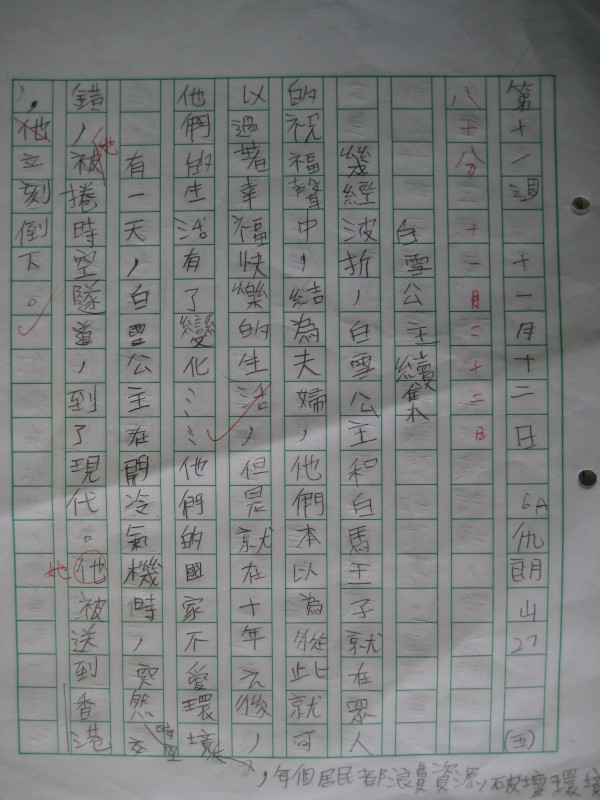 第十一週 十一月十二日 6A 仇朗山 27 (五)
八十分 十一月二十二日
白雪公主續集
幾經波折，白雪公主和白馬王子就在眾人
的祝福聲中，結為夫婦，他們本以為從此就可
以過著幸福快樂的生活，但是就在十年之後，
他們的生活有了變化……他們的國家不愛環境
，每個居民都浪費資源，破壞環境
有一天，白雪公主在開冷氣機時，突然時空交
錯，她被捲時空隧道，到了現代。他她被送到香港
，他立刻倒下。